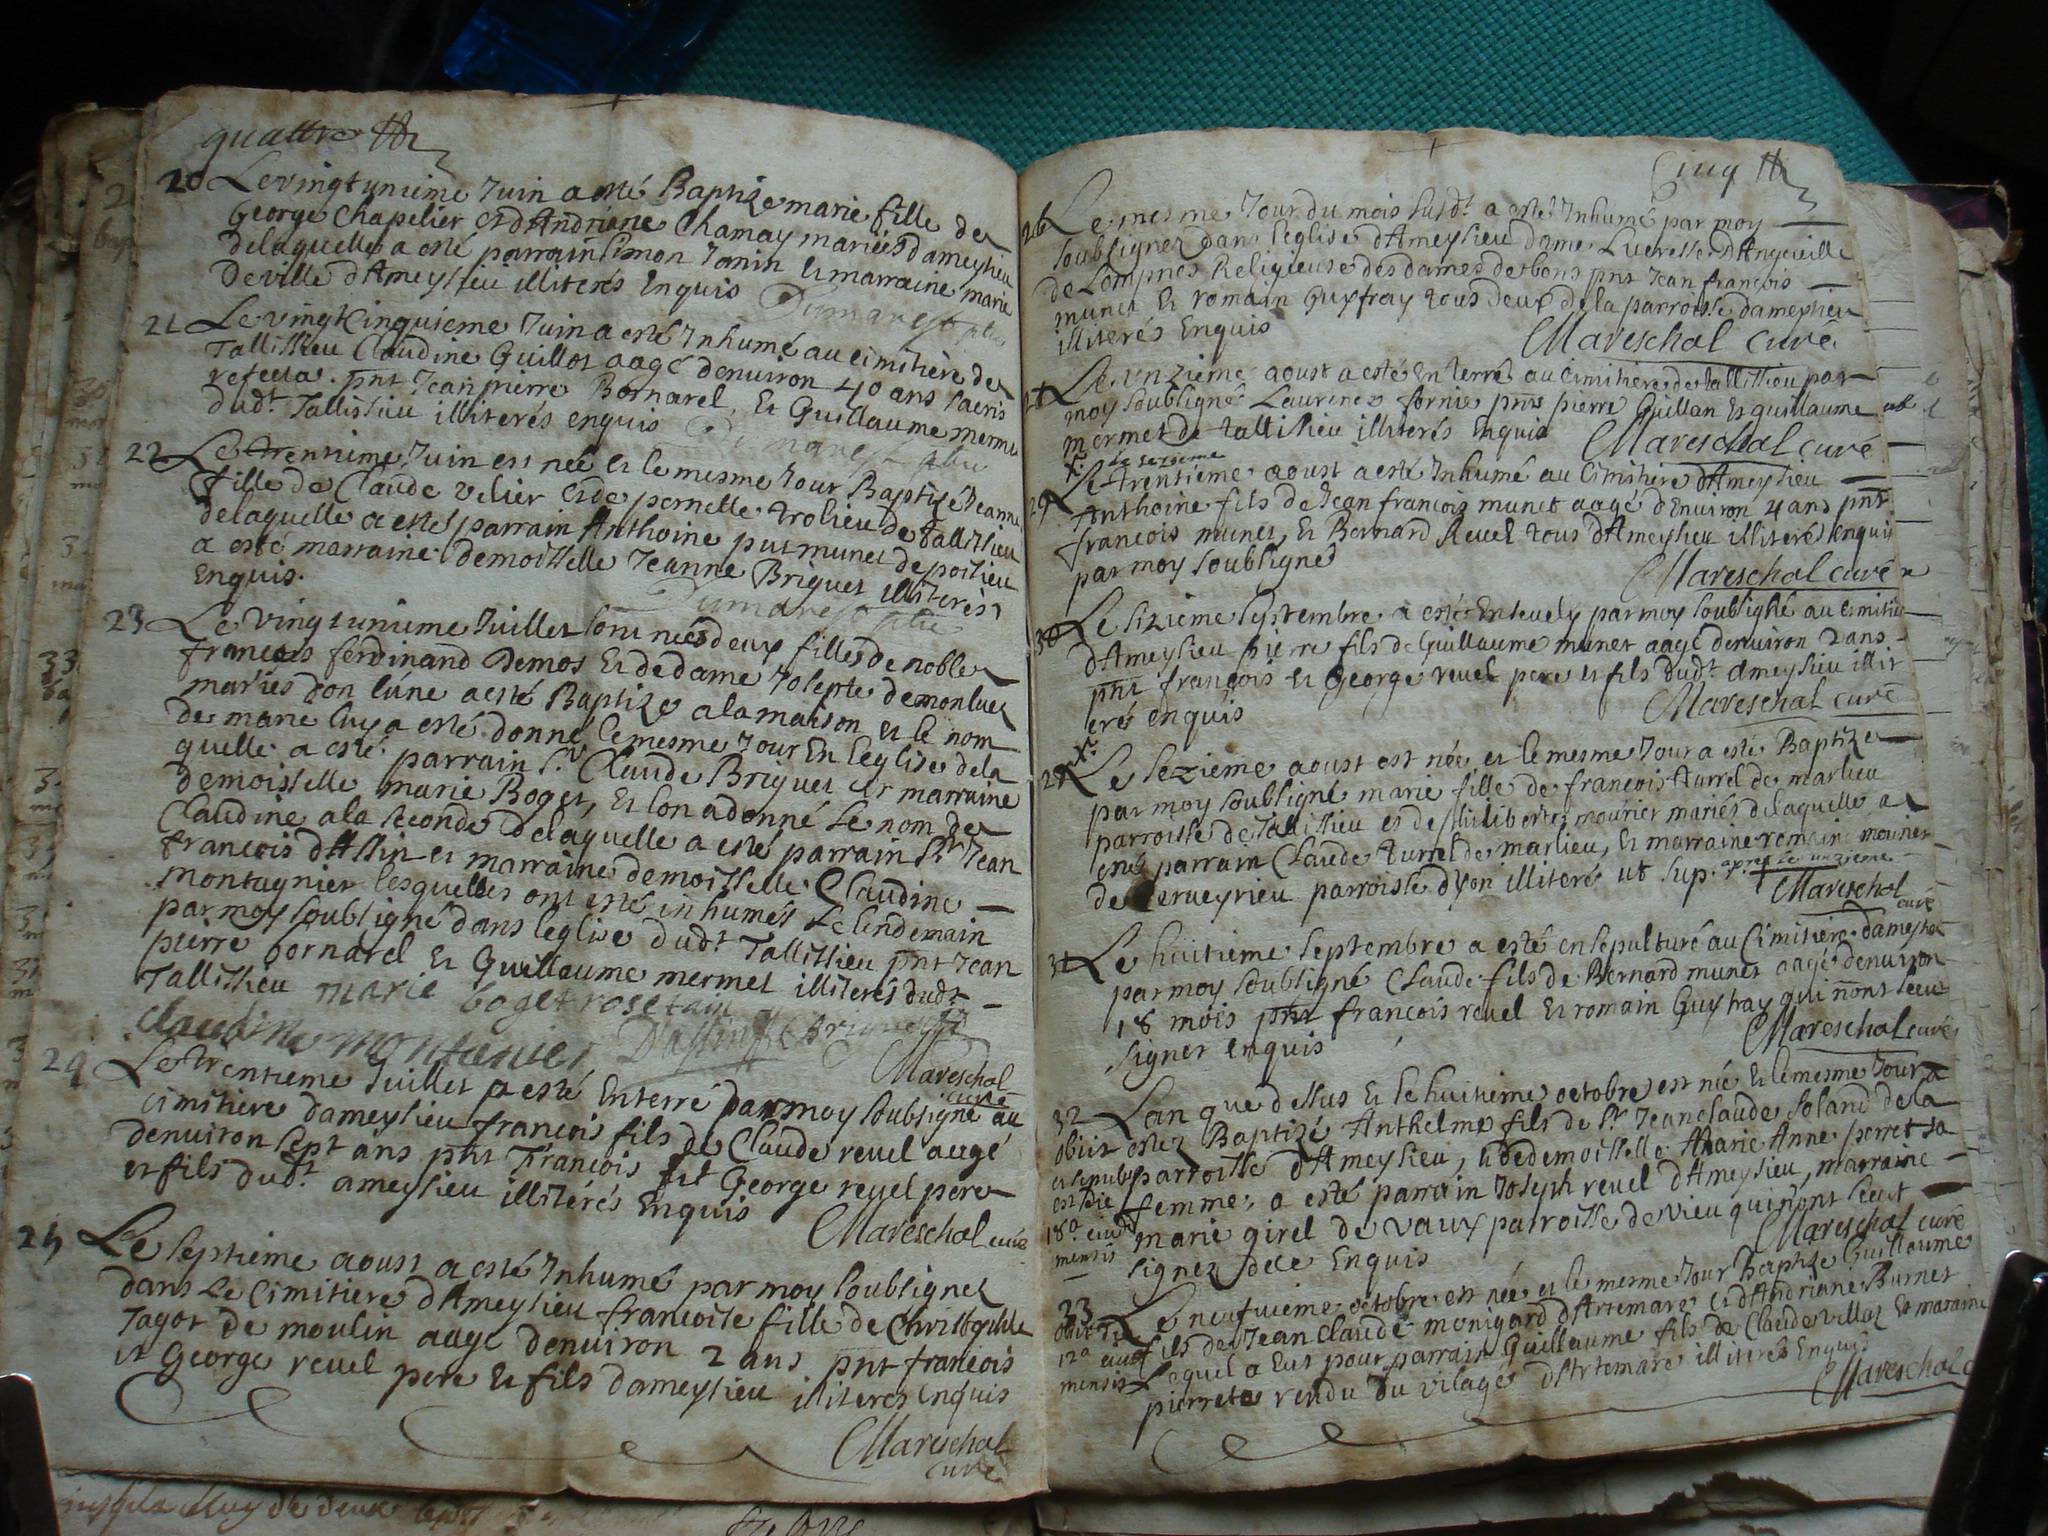 quattre
20 Le vingt unieme Juin a esté Baptize marie fille de
George Chapelier et d'Andriane Chamay mariés d'ameysieu
de laquelle a esté parrain Simon Janin et marraine marie
Deville d'Ameysieu illiterés Enquis Dumarest
21 Le vingt cinquieme Juin a esté Inhumé au cimitiere de
Tallissieu Claudine Guillot aagé denuiron 40 ans sacris
refecta. pnt Jean pierre Bornarel, Et Guillaume merme
dudt. Tallissieu illiterés enquis Dumarest
22 Le trentieme Juin est née et le mesme Jour Baptizé Jeanne
fille de Claude velier et de pernelle trolieu de Tallissieu
de laquelle a esté parrain Anthoine put munet de poisieu
a esté marraine demoisselle Jeanne Briquet illiterés
Enquis. Dumarest
23 Le vingt unieme Juillet sont nées deux filles de noble
francois ferdinand Demos Et de dame Josepte demonluel
mariés don lúne a esté Baptize a la maison et le nom
de marie luy a esté donné le mesme Jour En l'eglise de la
quelle a esté parrain Sr. Claude Briquet et marraine
demoisselle marie Boget, Et lon a donné le nom de
Claudine a la seconde de laquelle a esté parrain Sr Jean
francois d'Assin et marraine demoisselle Claudine
montagnier lesquelles ont esté inhumés Le lendemain
par moy soubsigné dans leglise dudt Tallissieu pnt Jean
pierre bornarel Et Guillaume mermet illiterés dudt
Tallissieu marie boget rosetain
claudine montanier D'assin C Briquet
Mareschal
curé
24 Le trentieme Juillet a esté Enterré par moy soubsigné au
cimitiere dameysieu francois fils de Claude revel aagé
denuiron sept ans pnt François et George revel pere
et fils dudt. ameysieu illitérés Enquis
Mareschal curé
25 Le septieme aoust a esté Inhumé par moy soubsignez
dans Le Cimitiere d'Ameysieu francoise fille de Christophle
Jagot de moulin aage denuiron 2 ans pnt francois
et George revel pere Et fils dameysieu illiteres Enquis
Mareschal
curé
Cinq
26 Le mesme Jour du mois susdt a esté Inhumé par moy
soubsignez dans l'eglise d'Ameysieu dame Lucresse d'Angeuille
de Lompnes Religieuse des dames de bons pnt Jean francois
munet Et romain Guyfray tous deux de la parroisse dameysieu
illiterés Enquis
Mareschal curé
Le unzieme aoust a esté Enterré au Cimitiere de tallissieu par
moy soubsigné Laurence fornie pnts pierre Guillan Et guillaume
mermet de tallissieu illiterés Enquis Mareschal curé
le sezieme
Le trentième aoust a esté Inhumé au Cimitiere d'Ameysieu
Anthoine fils de Jean francois munet aagé d'Enuiron 4 ans pnt
francois munet, Et Bernard Revel tous d'Ameysieu illiterés Enquis
par moy soubsigné
Mareschal curé
30 Le sizieme septembre a esté Ensevely par moy soubsigné au Cimitie
d'Ameysieu pierre fils de Guillaume munet aagé denuiron 2 ans
pnt francois et George revel pere et fils dudt. Ameysieu illit
erés enquis
Mareschal curé
Le sezieme aoust est née et le mesme Jour a esté Baptize
par moy soubsigné marie fille de francois turrel de marlieu
parroisse de Tallissieu et de philiberte mourier mariés de laquelle a
esté parrain Claude turrel de marlieu, Et marraine romain mourier
de Cerueyrieu parroisse dyon illiteré ut sup. apres le unzieme
Mareschal
curé
31 Le huitieme septembre a esté ensepulturé au Cimitiere dameysieu
par moy soubsigné Claude fils de Bernard munet aagé denuiron
18 mois pnt francois revel Et romain Guyfray qui n'ont sceu
signer enquis
Mareschal curé
32 Lan que dessus Et le huitieme octobre est née Et le mesme Jour a
estez Baptizé Anthelme fils de Sr Jean claude Soland de la
parroisse d'Ameysieu, et de demoisselle Marie Anne perret sa
femme, a esté parrain Joseph revel d'Ameysieu, marraine
marie girel de vaux parroisse de vieu qui n'ont sceut
signez de ce Enquis
Mareschal curé
obiit
et sepult
est die
18a eiusd
mensis
33 Le neufvieme octobre est née et le mesme Jour Baptize Guillaume
fils de Jean Claude monigard d'Artemare et d'Andriane Burnet
Lequel a Eut pour parrain Guillaume fils de Claude villot Et maraine
pierrete rendu du vilage d'Artemare illiterés Enquis
Mareschal c
obiit die
12a eiusd
mensis